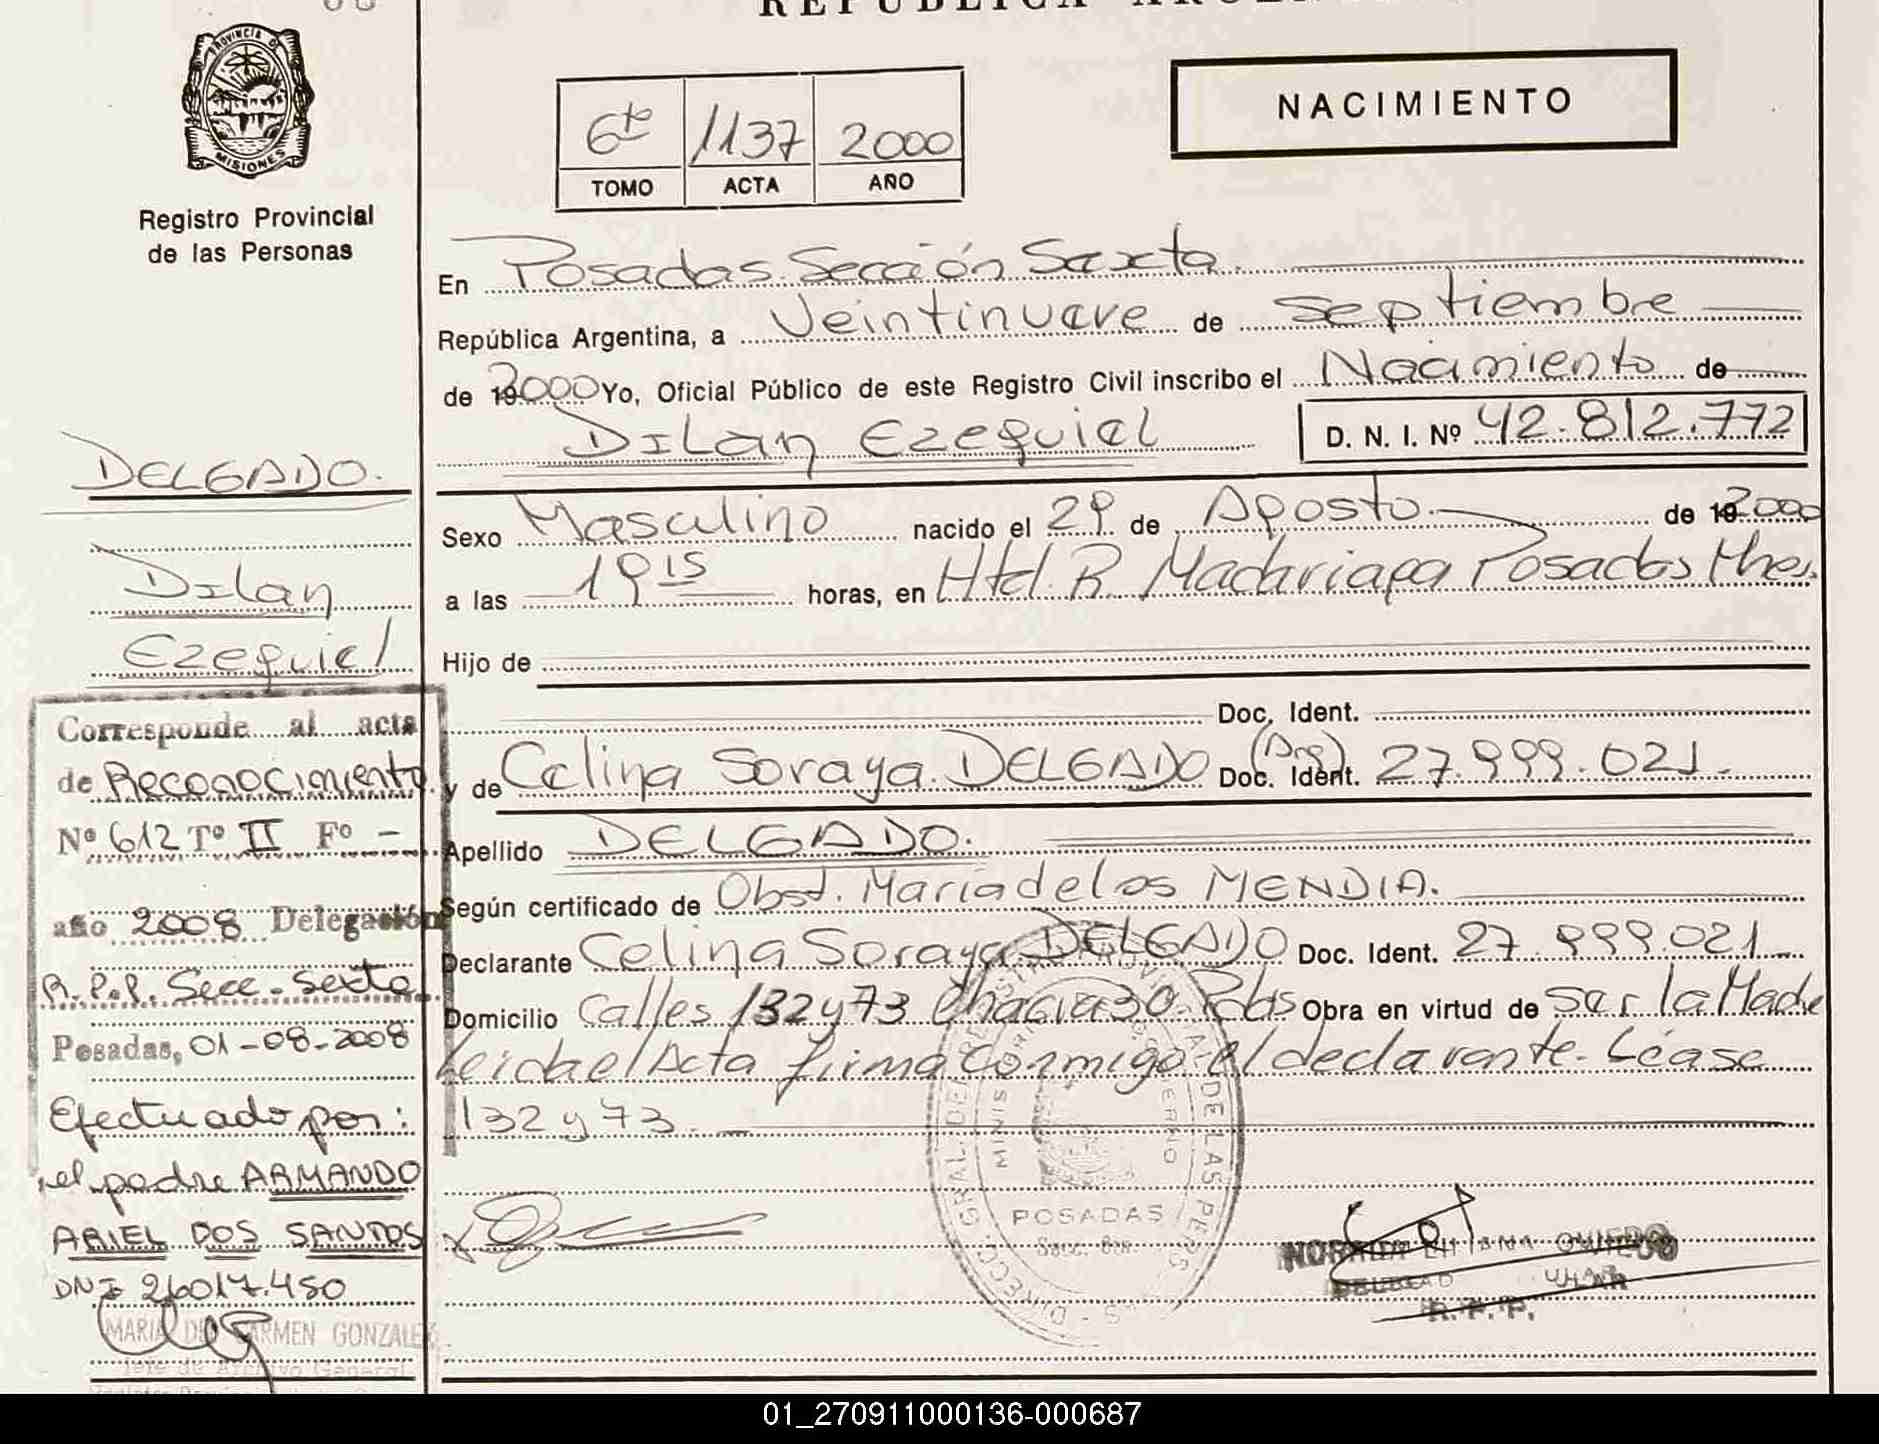 REPUBLICA ARGENTINA
PROVINCIA DE
MISIONES
Registro Provincial
de las Personas
6to 1137 2000
TOMO ACTA AÑO
NACIMIENTO
En Posadas Sección Sexta
República Argentina, a Veintinueve de septiembre
de 19 2000 Yo, Oficial Público de este Registro Civil inscribo el Nacimiento de
Dilan Ezequiel D. N. I. Nº 42.812.772
Sexo Masculino nacido el 29 de Agosto de 19 2000
a las 19 15 horas, en Htal. R. Madariaga Posadas Mnes.
Hijo de
Doc. Ident.
y de Celina Soraya DELGADO (Arg) Doc. Ident. 27.999.021.
Apellido DELGADO.
Según certificado de Obst. Maria de los MENDIA.
Declarante Celina Soraya DELGADO Doc. Ident. 27.999.021
Domicilio Calles 132 y 73 Chacra 30. Pdas Obra en virtud de ser la Madre
Leida el Acta firma conmigo el declarante. Léase
132 y 73.
DELGADO.
Dilan
Ezequiel
Corresponde al acta
de Reconocimiento
Nº 612 Tº II Fº -
año 2008 Delegación
R.P.P. Secc. Sexta
Posadas, 01-08-2008
Efectuado por:
el padre ARMANDO
ARIEL DOS SANTOS
DNI 26017.450
MARIA DEL CARMEN GONZALEZ
Jefe de Archivo General
POSADAS
Secc. 6ta.
OVIEDO
R. P. P.
01_270911000136-000687